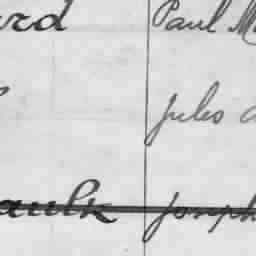 ard Paul M
Jules a
aulk Joseph